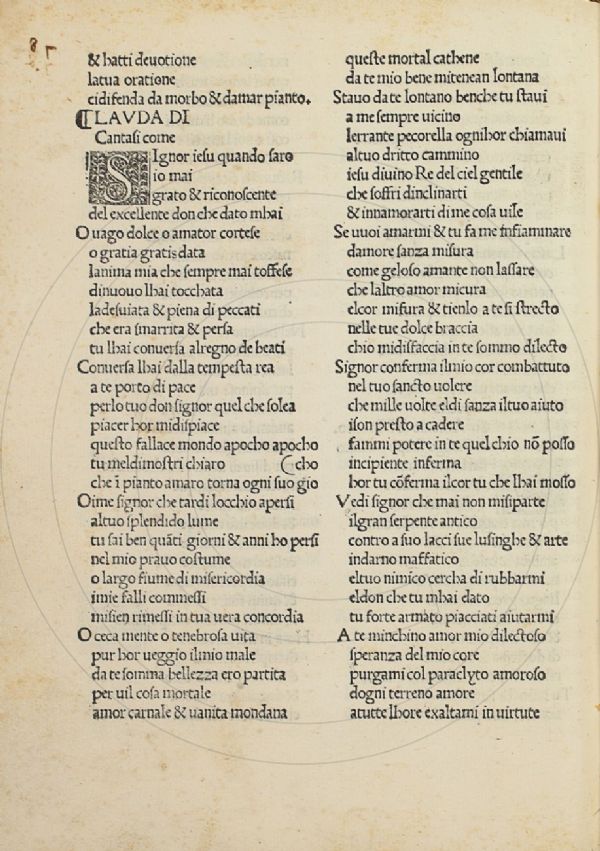 & hatti deuotione
latua oratione
cidifenda da morbo & damar pianto.
¶LAVDA DI
Cantasi come
SIgnor iesu quando saro
io mai
grato & riconoscente
del excellente don che dato mhai
O uago dolce o amator cortese
o gratia gratis data
lanima mia che sempre mai toffese
dinuouo lhai tocchata
ladesuiata & piena di peccati
che era smarrita & persa
tu lhai conuersa alregno de beati
Conuersa lhai dalla tempesta rea
a te porto di pace
perlo tuo don signor quel che solea
piacer hor midispiace
questo fallace mondo apocho apocho
tu meldimostri chiaro (cho
che ī pianto amaro torna ogni suo gio
Oime signor che tardi locchio apersi
altuo splendido lume
tu sai ben quāti giorni & anni ho persi
nel mio prauo costume
o largo fiume di misericordia
imie falli commessi
misien rimessi in tua uera concordia
O ceca mente o tenebrosa uita
pur hor ueggio ilmio male
da te somma bellezza ero partita
per uil cosa mortale
amor carnale & uanita mondana
queste mortal cathene
da te mio bene mitenean lontana
Stauo da te lontano benche tu staui
a me sempre uicino
lerrante pecorella ognihor chiamaui
altuo dritto cammino
iesu diuino Re del ciel gentile
che soffri dinclinarti
& innamorarti di me cosa uile
Se uuoi amarmi & tu fa me infiammare
damore sanza misura
come geloso amante non lassare
che laltro amor micura
elcor misura & tienlo a te si strecto
nelle tue dolce braccia
chio midisfaccia in te sommo dilecto
Signor conferma ilmio cor combattuto
nel tuo sancto uolere
che mille uolte eldi sanza iltuo aiuto
ison presto a cadere
fammi potere in te quel chio nō posso
incipiente inferma
hor tu cōferma ilcor tu che lhai mosso
Vedi signor che mai non misiparte
ilgran serpente antico
contro a suo lacci sue lusinghe & arte
indarno maffatico
eltuo nimico cercha di rubbarmi
eldon che tu mhai dato
tu forte armato piacciati aiutarmi
A te minchino amor mio dilectoso
speranza del mio core
purgami col paraclyto amoroso
dogni terreno amore
atutte lhore exaltami in uirtute